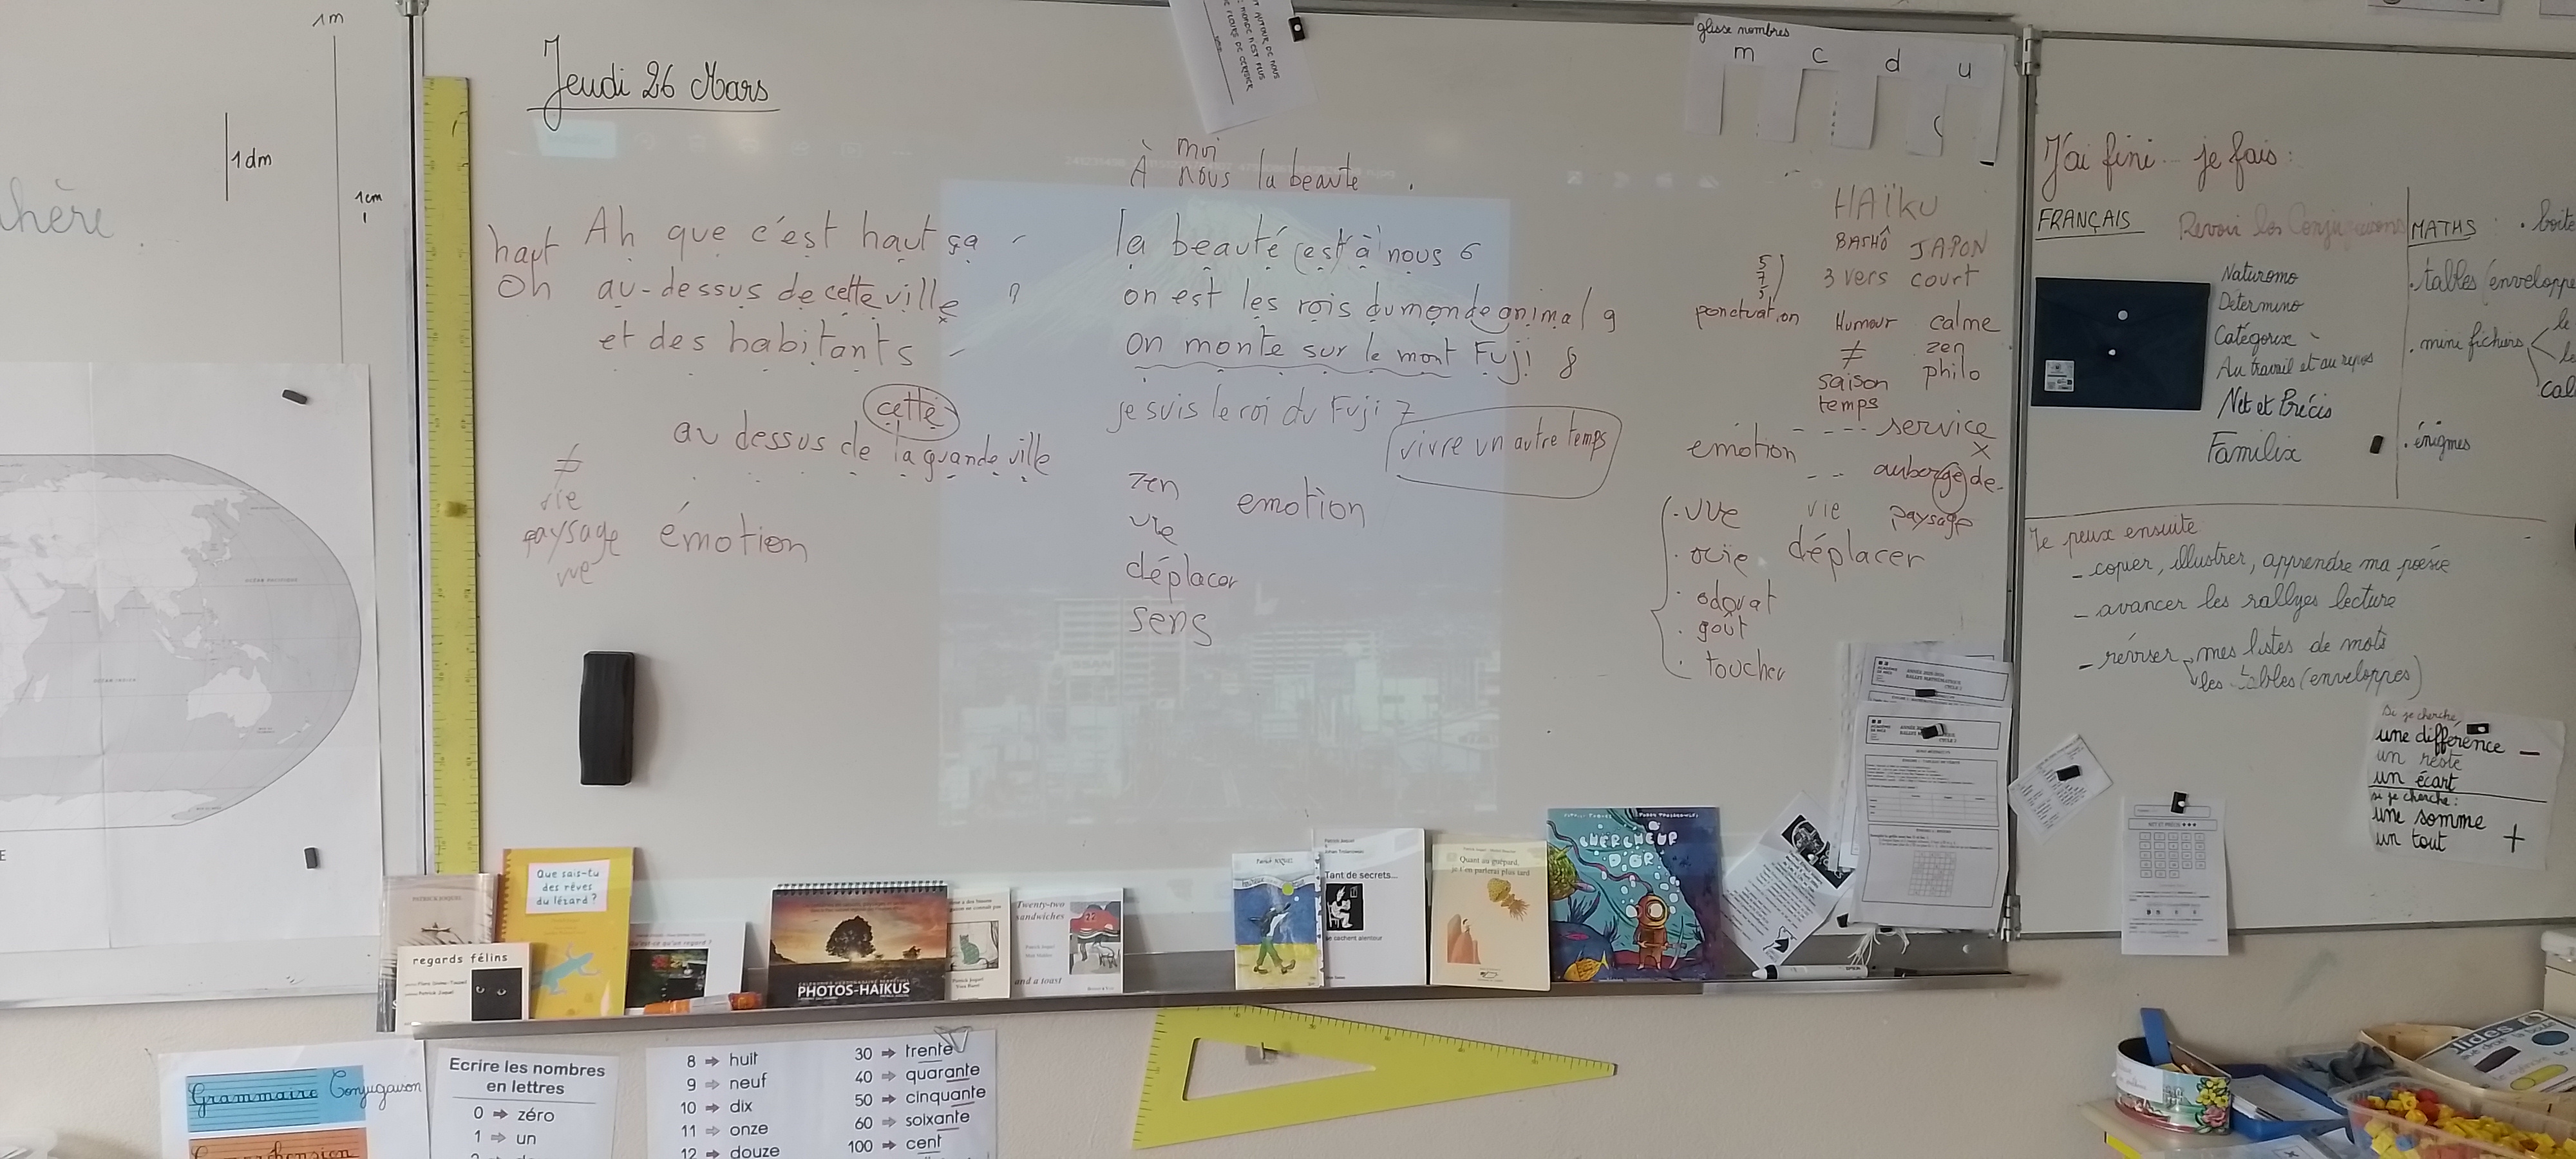 1m
1 dm
1cm
hère.
Jeudi 26 Mars
haut
Oh
Ah que c'est haut ça
au-dessus de cette ville
et des habitants
cette
au dessus de la grande ville
≠
vie
paysage
vue
émotion
moi
À nous la beauté
la beauté (est) à nous 6
on est les rois du monde animal 9
on monte sur le mont Fuji 8
je suis le roi du Fuji 7
vivre un autre temps
zen
vie
déplacer
sens
emotion
glisse nombres
m c d u
HAÏKU
BASHÔ JAPON
5
7
5
3 vers court
ponctuation
Humour calme
≠ zen
saison philo
temps
emotion
service
x
auberge de
vue vie paysage
ouïe déplacer
odorat
goût
toucher
J'ai fini... je fais :
FRANÇAIS
Revoir les Conjugaisons
Naturomo
Determino
Catégorix
Au travail et au repos
Net et Précis
Familix
MATHS : . boîte
. tables (enveloppe
. mini fichiers
cal
. énigmes
Je peux ensuite
- copier, illustrer, apprendre ma poésie
- avancer les rallyes lecture
- réviser mes listes de mots
les tables (enveloppes)
Si je cherche,
une différence
un reste
un écart
-
si je cherche :
une somme
un tout
+
regards félins
Que sais-tu
des rêves
du lézard ?
PHOTOS-HAÏKUS
Twenty-two
sandwiches
and a toast
Tant de secrets...
se cachent alentour
Quant au guépard,
je t'en parlerai plus tard
CHERCHEUR
D'OR
Grammaire Conjugaison
Ecrire les nombres
en lettres
0 ➔ zéro
1 ➔ un
8 ➔ huit
9 ➔ neuf
10 ➔ dix
11 ➔ onze
12 ➔ douze
30 ➔ trente
40 ➔ quarante
50 ➔ cinquante
60 ➔ soixante
100 ➔ cent